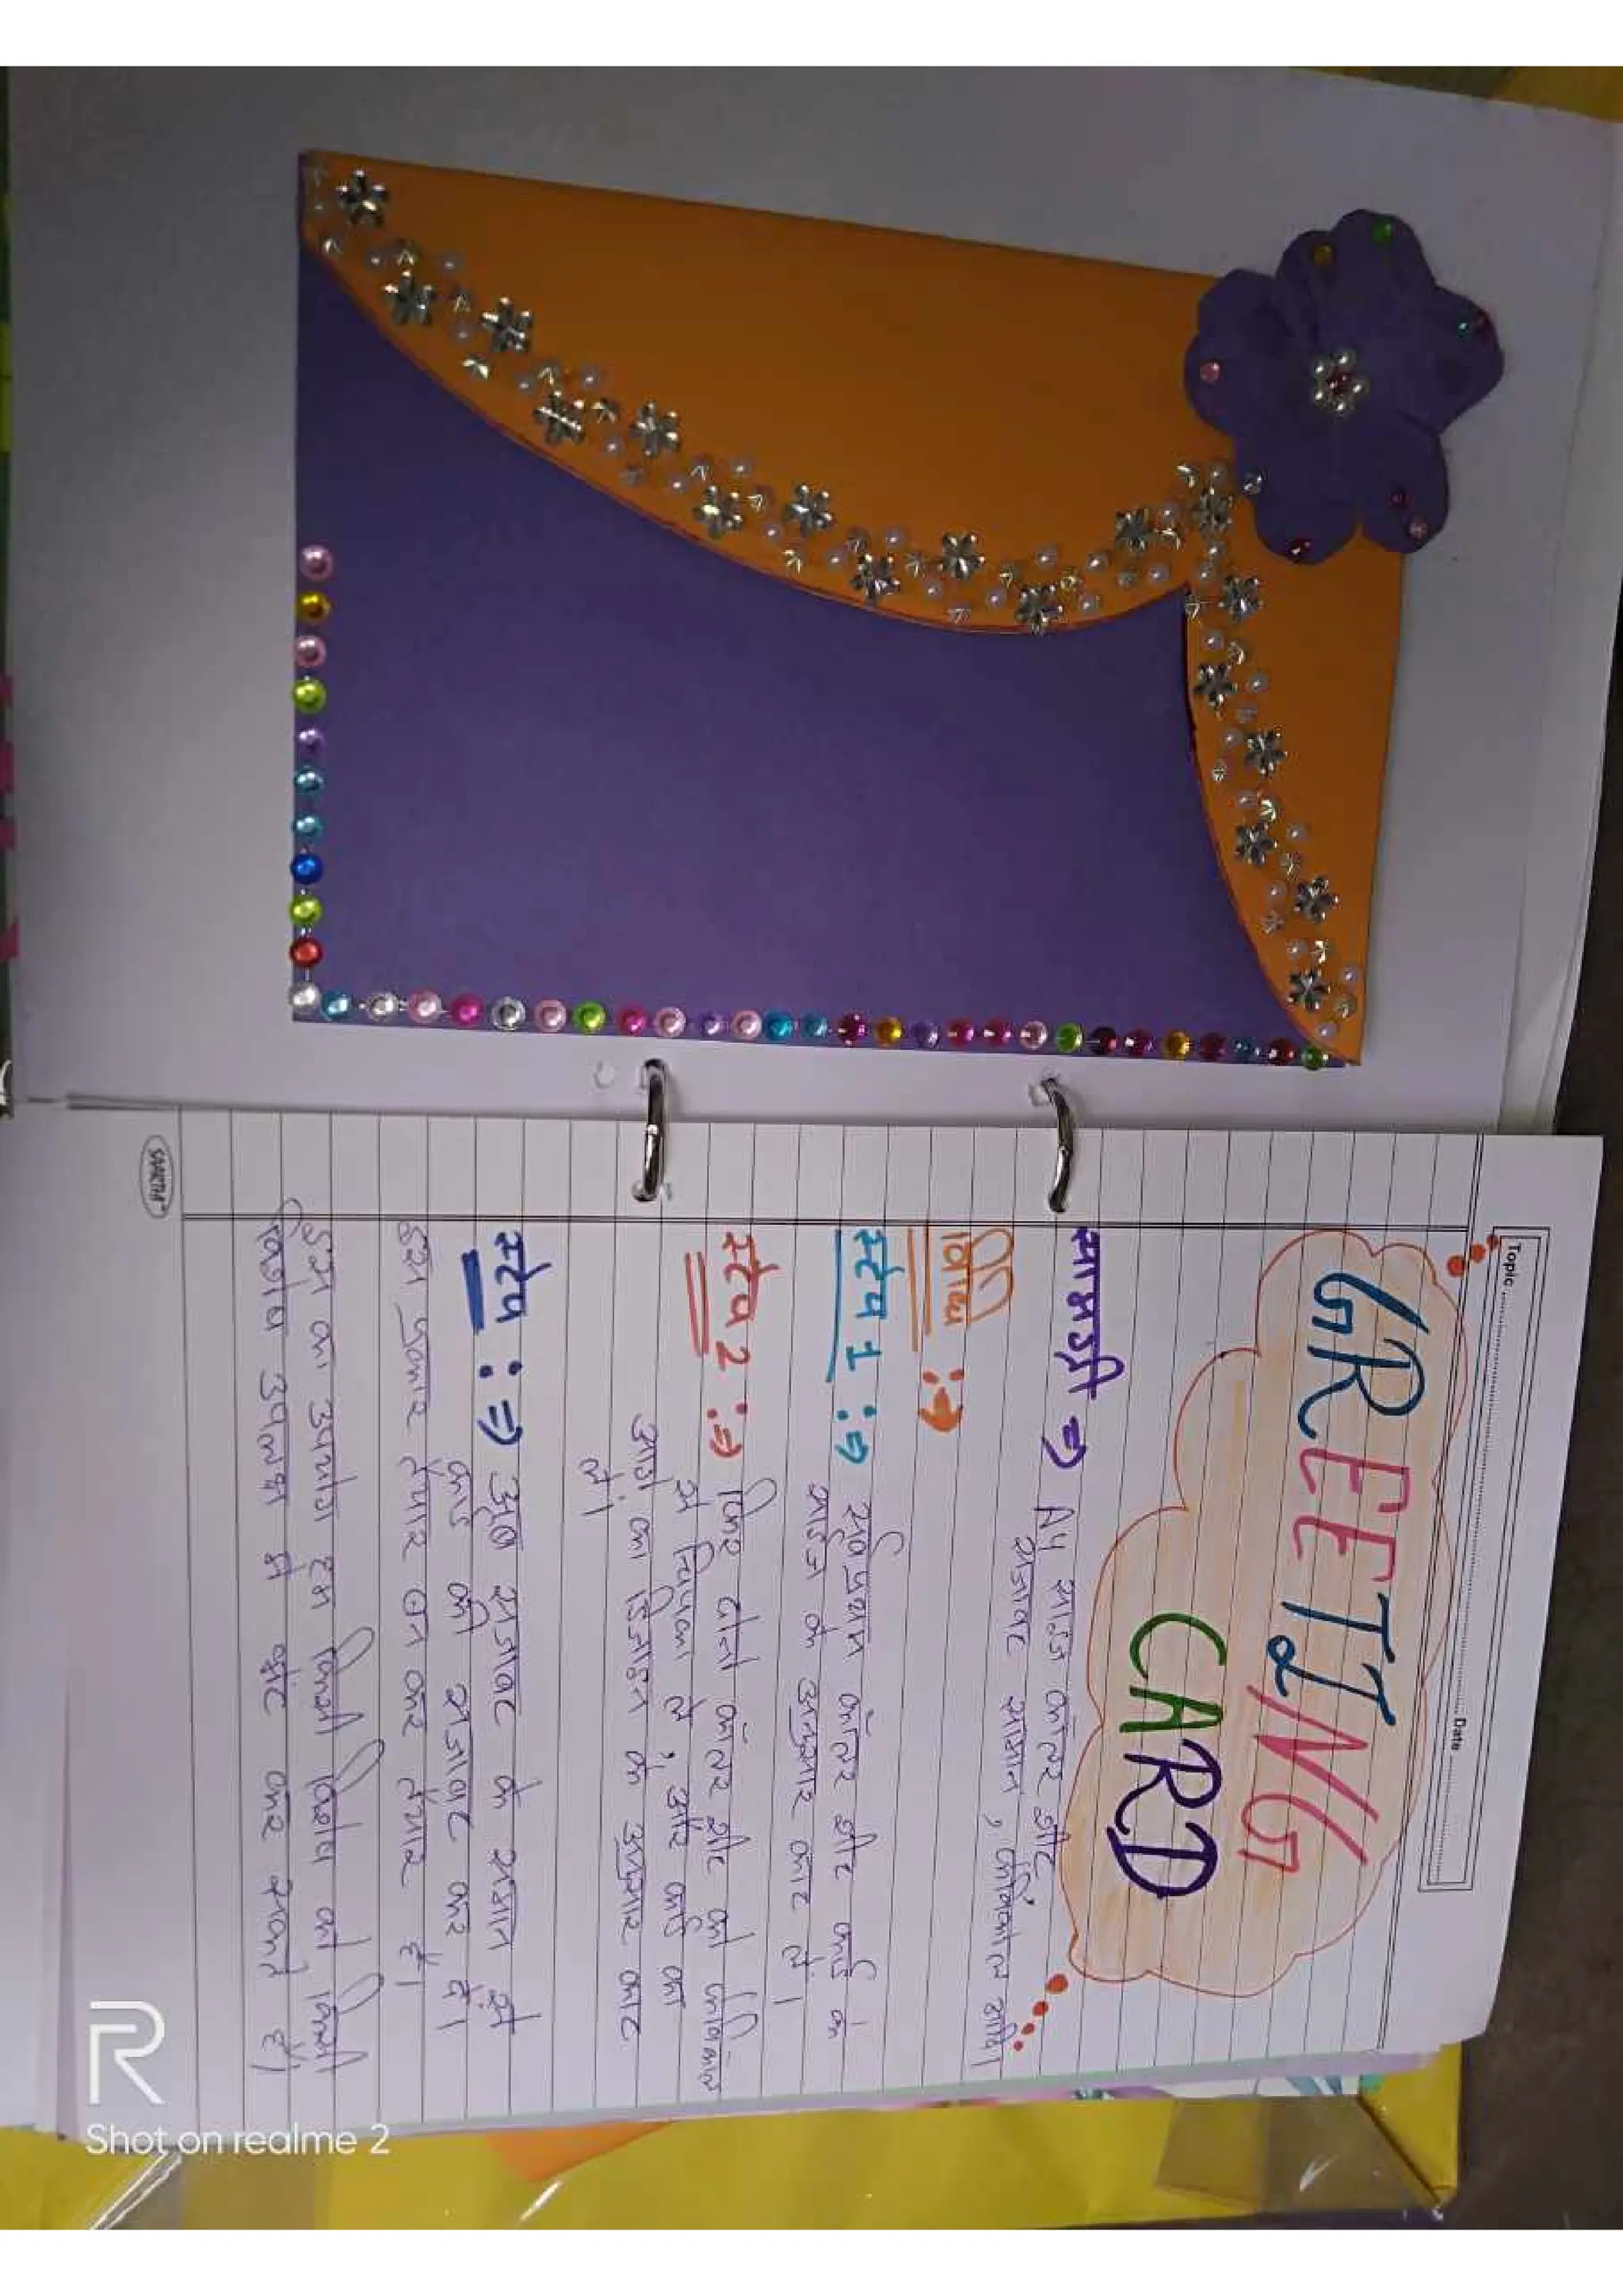 Topic
Date
GREETING
CARD
सामग्री ⇒ A4 साइज कलर शीट,
सजावट सामान, फेविकोल आदि।
विधि :⇒
स्टेप 1 :⇒ सर्वप्रथम कलर शीट कार्ड के
साईज के अनुसार काट ले।
स्टेप 2 :⇒ फिर दोनो कलर शीट को फेविकोल
से चिपका ले, और कार्ड का
आगे का डिजाइन के अनुसार काट
ले।
स्टेप :⇒ कुछ सजावट के सामान से
कार्ड की सजावट कर दे।
इस प्रकार हमारा बन कर तैयार है।
इस का उपयोग हम किसी विशेष को किसी
विशेष उपलक्ष में भेंट कर सकते है।
SAARTHI
R
Shot on realme 2